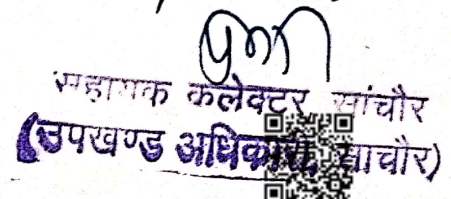 सहायक कलेक्टर सांचौर
(उपखण्ड अधिकारी, साचौर)